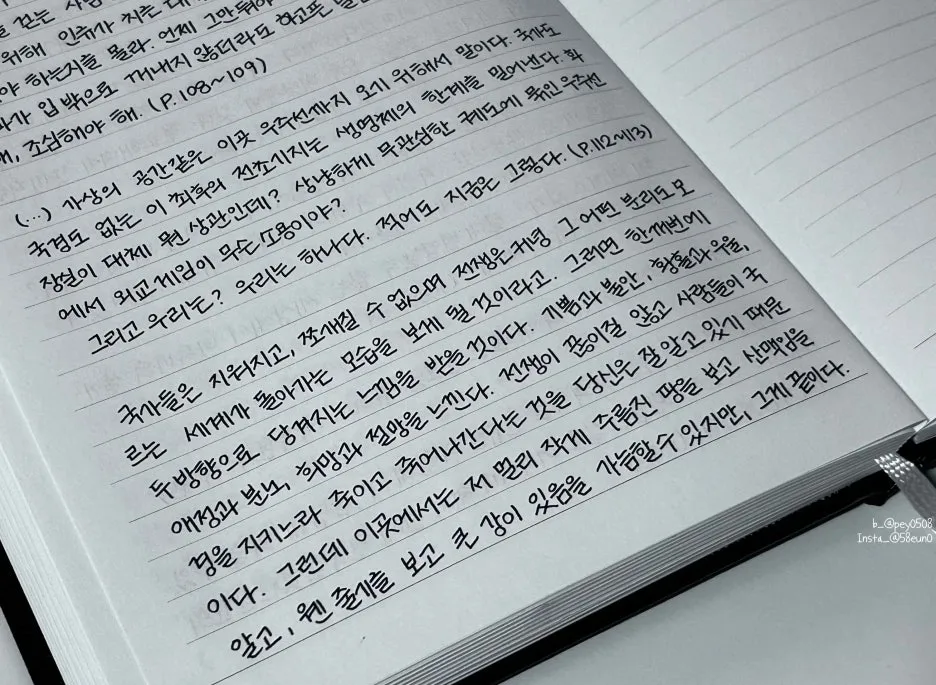 걷는 사람
위해 인류가 치른 대
야 하는지를 몰라. 언제 그만둬야
가 입 밖으로 꺼내지 않더라도 하고픈
조심해야 해. (P.108~109)
(...) 가상의 공간같은 이곳 우주선까지 오기 위해서 말이다. 국가도
국경도 없는 이 최후의 전초기지는 생명체의 한계를 밀어낸다. 화
장실이 대체 뭔 상관인데? 상냥하게 무관심한 궤도에 묶인 우주선
에서 외교게임이 무슨 소용이야?
그리고 우리는? 우리는 하나다. 적어도 지금은 그렇다. (P.112~113)
국가들은 지워지고, 쪼개질 수 없으며 전쟁은커녕 그 어떤 분리도 모
르는 세계가 돌아가는 모습을 보게 될 것이라고. 그러면 한꺼번에
두방향으로 당겨지는 느낌을 받을 것이다. 기쁨과 불안, 황홀과 우울,
애정과 분노, 희망과 절망을 느낀다. 전쟁이 끊이질 않고 사람들이 국
경을 지키느라 죽이고 죽어나간다는 것을 당신은 잘 알고 있기 때문
이다. 그런데 이곳에서는 저 멀리 작게 주름진 땅을 보고 산맥임을
알고, 웬 줄기를 보고 큰 강이 있음을 가늠할 수 있지만, 그게 끝이다.
b_@pey0508
Insta_@58eun0